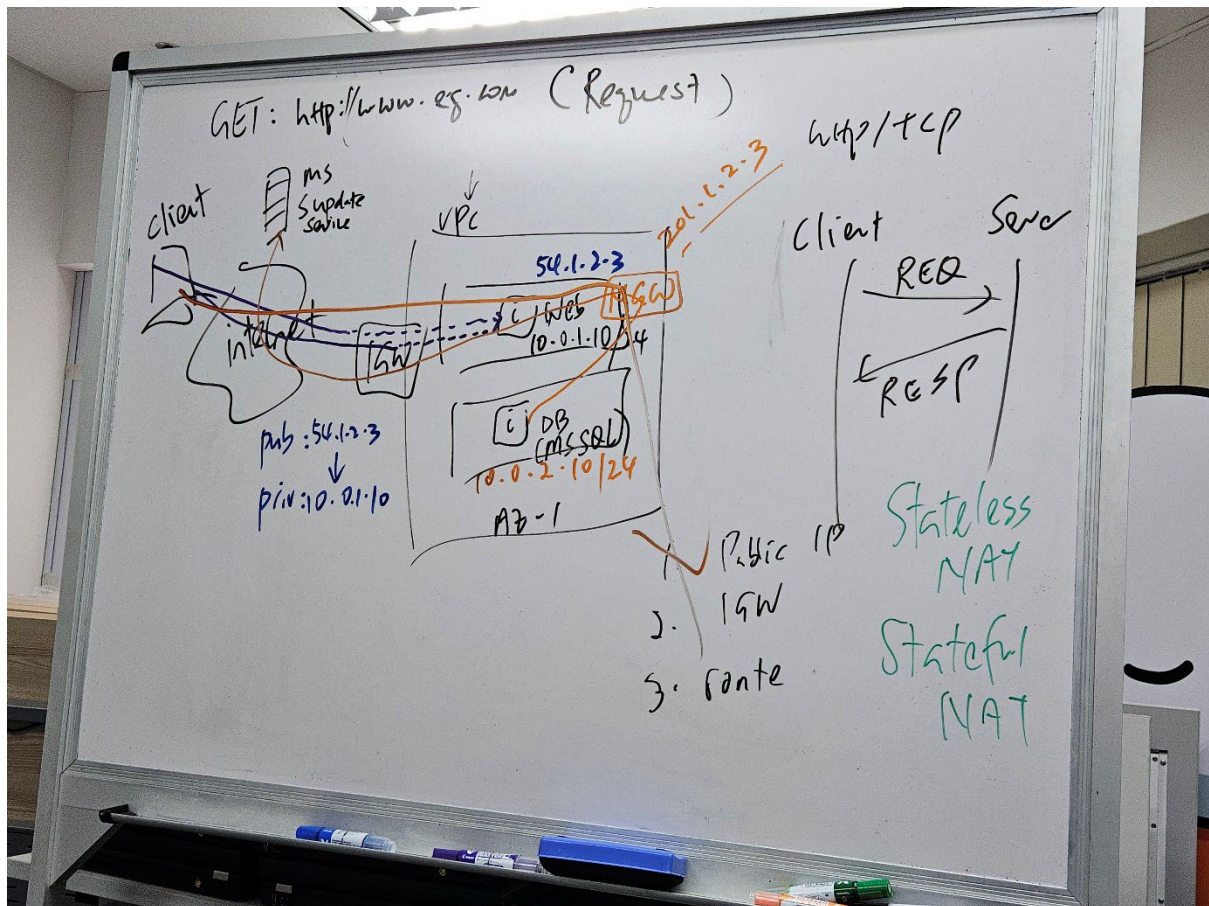 GET: http://www.eg.com (Request)
http/tcp
MS
Supdate
Service
Client
VPC
201.1.2.3
54.1.2.3
NGW
i Web
10.0.1.10 4
internet
IGW
i DB
(MSSQL)
10.0.2.10/24
AZ-1
pub:54.1.2.3
priv:10.0.1.10
Client
Server
REQ
RESP
1. Public IP
2. IGW
3. route
Stateless
NAT
Stateful
NAT